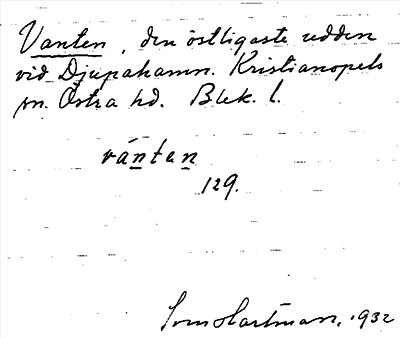 Vanten, den östligaste udden
vid Djupahamn. Kristianopels
sn. Östra hd. Blek. l.
vánten
129.
Sven Hartman, 1932